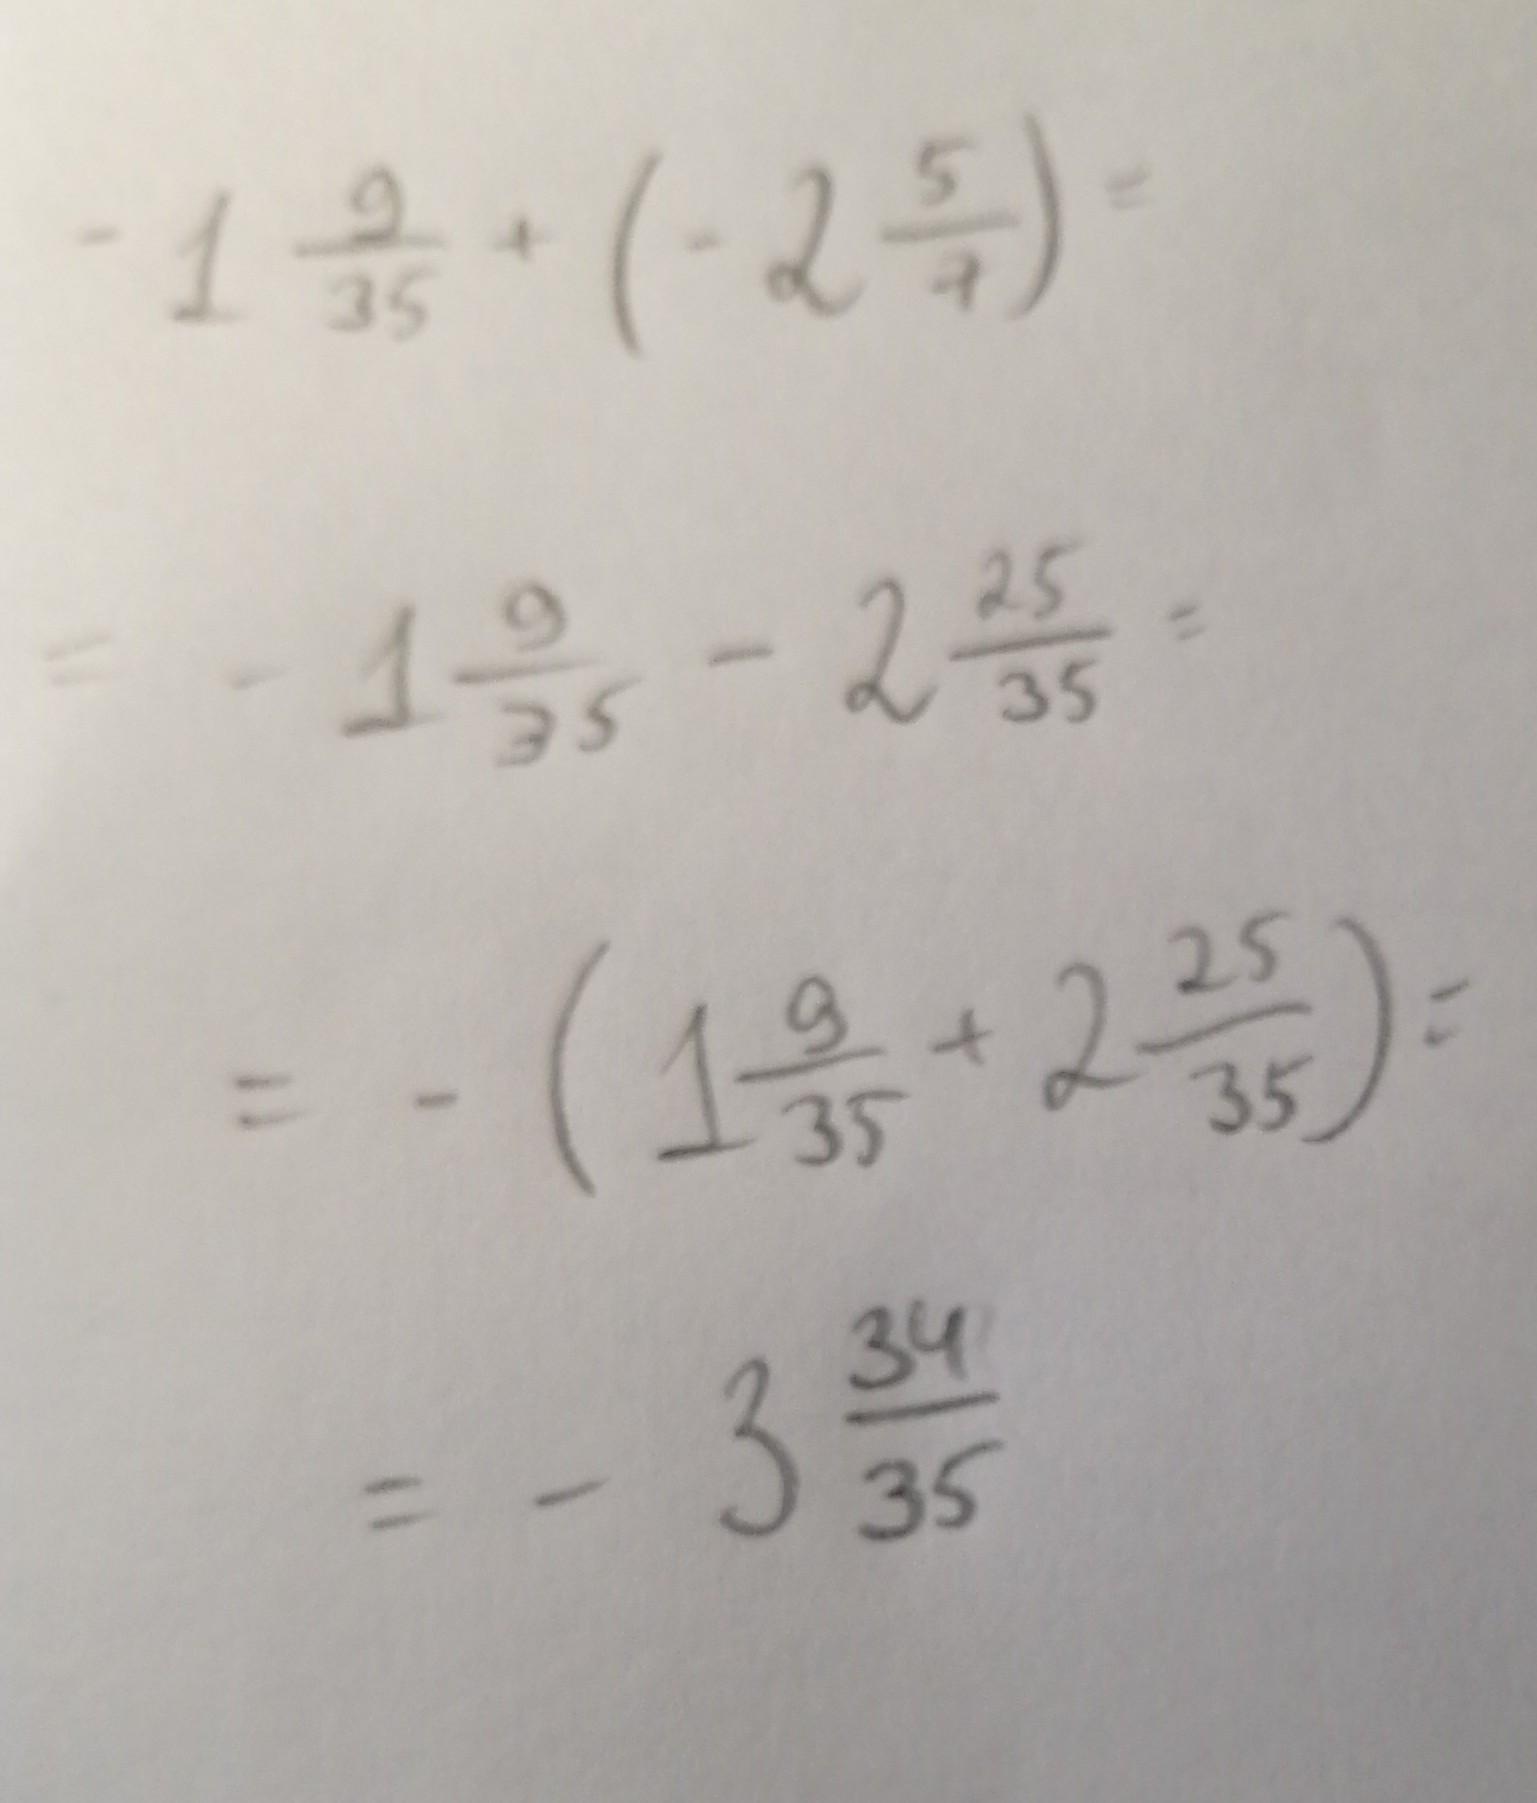 - 1 9/35 + (- 2 5/7) =
= - 1 9/35 - 2 25/35 =
= - (1 9/35 + 2 25/35) =
= - 3 34/35